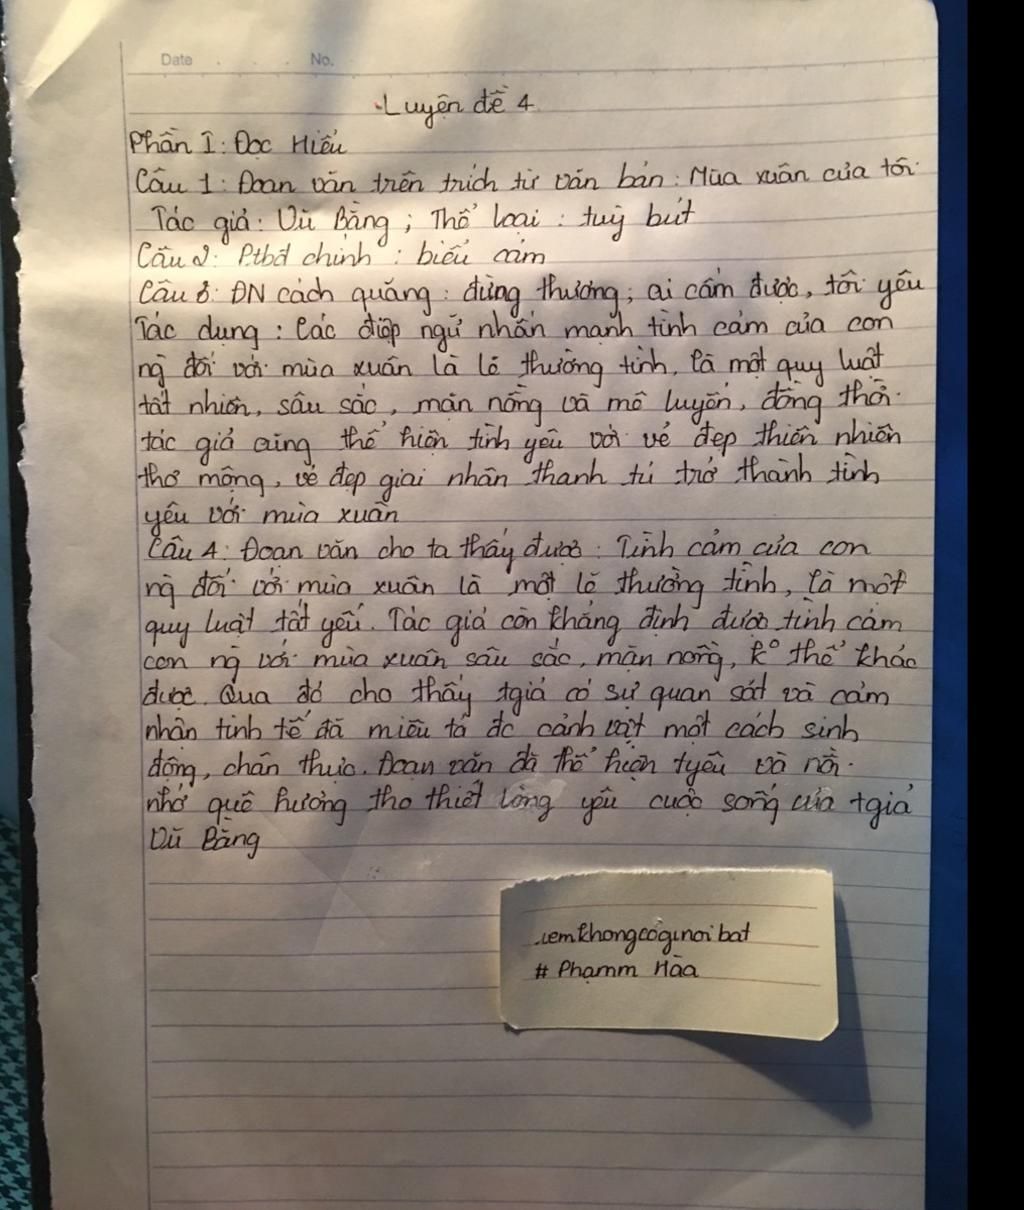 Date No.
Luyện đề 4
Phần I: Đọc Hiểu
Câu 1: Đoạn văn trên trích từ văn bản: Mùa xuân của tôi
Tác giả: Vũ Bằng; Thể loại: tuỳ bút
Câu 2: Ptbđ chính: biểu cảm
Câu 3: ĐN cách quãng: đừng thương; ai cấm được, tôi yêu
Tác dụng: Các điệp ngữ nhấn mạnh tình cảm của con
ng đối với mùa xuân là lẽ thường tình, là một quy luật
tất nhiên, sâu sắc, mặn nồng và mê luyến, đồng thời
tác giả cũng thể hiện tình yêu với vẻ đẹp thiên nhiên
thơ mộng, vẻ đẹp giai nhân thanh tú trở thành tình
yêu với mùa xuân
Câu 4: Đoạn văn cho ta thấy được: Tình cảm của con
ng đối với mùa xuân là một lẽ thường tình, là một
quy luật tất yếu. Tác giả còn khẳng định được tình cảm
con ng với mùa xuân sâu sắc, mặn nồng, k° thể khác
được. Qua đó cho thấy tgiả có sự quan sát và cảm
nhận tinh tế đã miêu tả đc cảnh vật một cách sinh
động, chân thực. Đoạn văn đã thể hiện tyêu và nỗi
nhớ quê hương tha thiết lòng yêu cuộc sống của tgiả
Vũ Bằng
.iemkhongcógìnoibat
# Phạmm Hòa